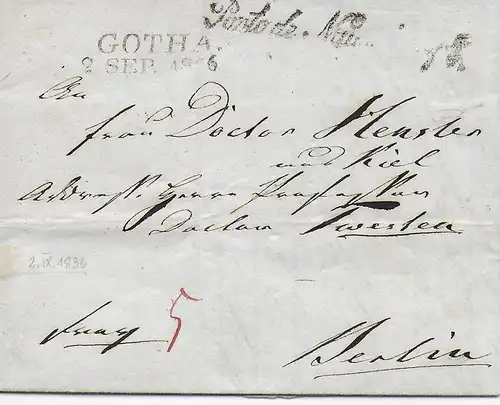 Porto de
GOTHA.
2 SEP. 1836
An
Frau Doctor Hensler
aus Kiel
Address. Herrn Professor
Doctor Twesten
2.IX.1836
5
Berlin